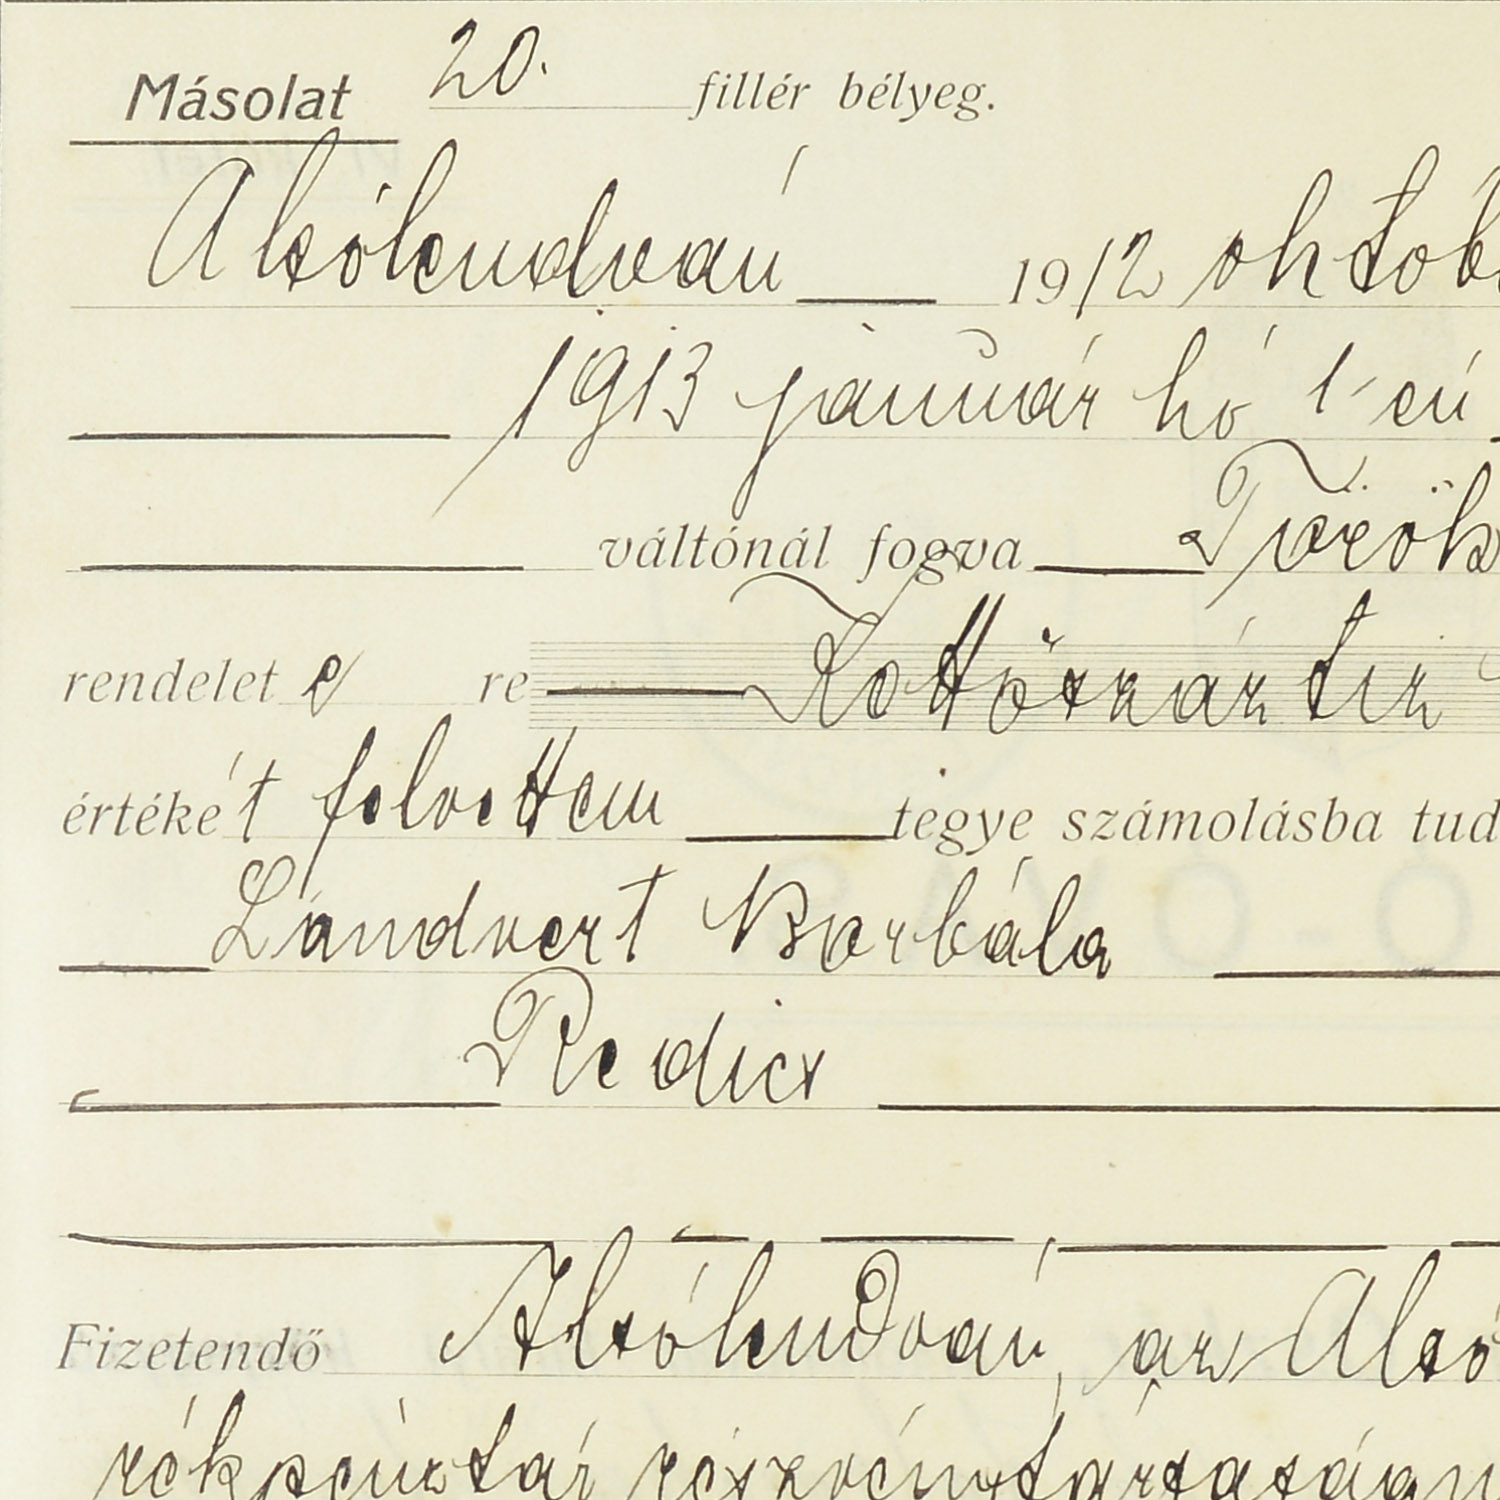 Másolat 20. fillér bélyeg.
Alsólendván 1912 októb
1913 január hó 1-én
váltónál fogva Török
rendelet e re Kettőszáz tiz
értéke't felvettem tegye számolásba tud
Landvert Borbála
Redics
Fizetendő Alsólendván, az Alsó
részvénytársaságn